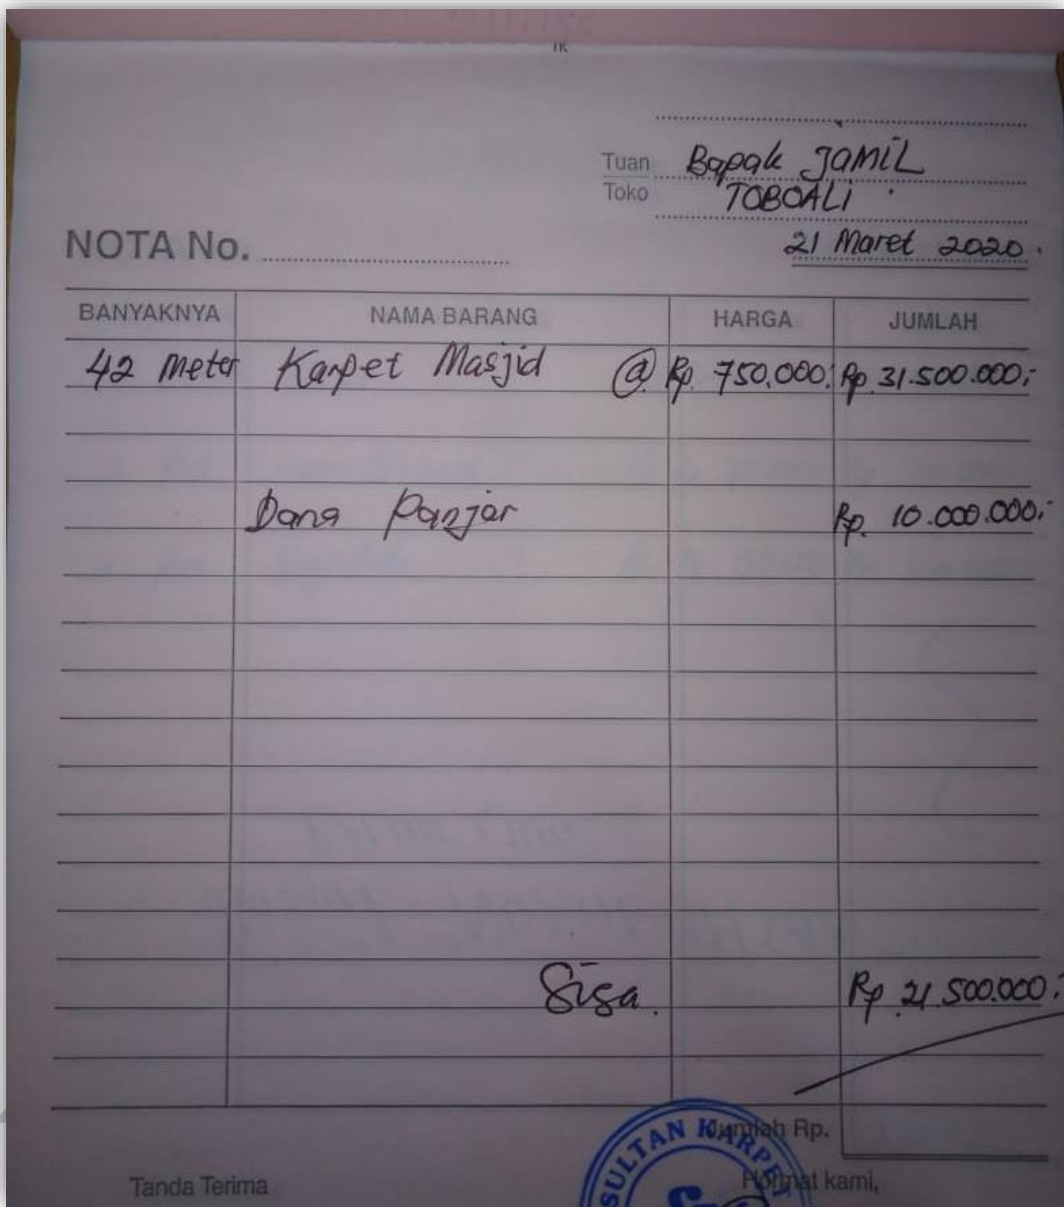 Tuan Bapak JAMIL
Toko TOBOALI
21 Maret 2020.
NOTA No.
BANYAKNYA NAMA BARANG HARGA JUMLAH
42 Meter Karpet Masjid @ Rp 750.000. Rp 31.500.000,-
Dana Panjar Rp. 10.000.000,-
Sisa. Rp 21.500.000,-
Jumlah Rp.
SULTAN KARPET
Tanda Terima Hormat kami,